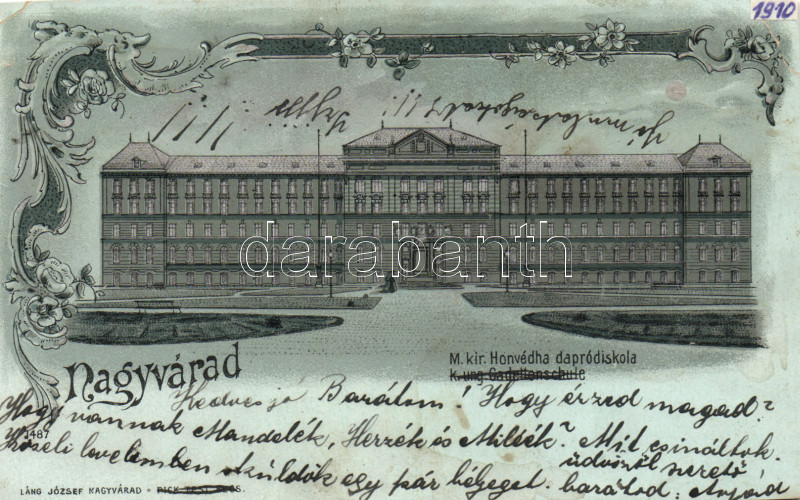 1910
Jó mulatságokat!!!
darabanth
Nagyvárad
M. kir. Honvédha dapródiskola
K. ung. Cadettenschule
Kedves jó Barátom! Hogy érzed magad?
Hogy vannak Mandelék, Herzék és Milléék? Mit csináltok.
1487
Közeli levelemben küldök egy pár bélyeget. üdvözöl szerető
barátod:
LÁNG JÓZSEF NAGYVÁRAD